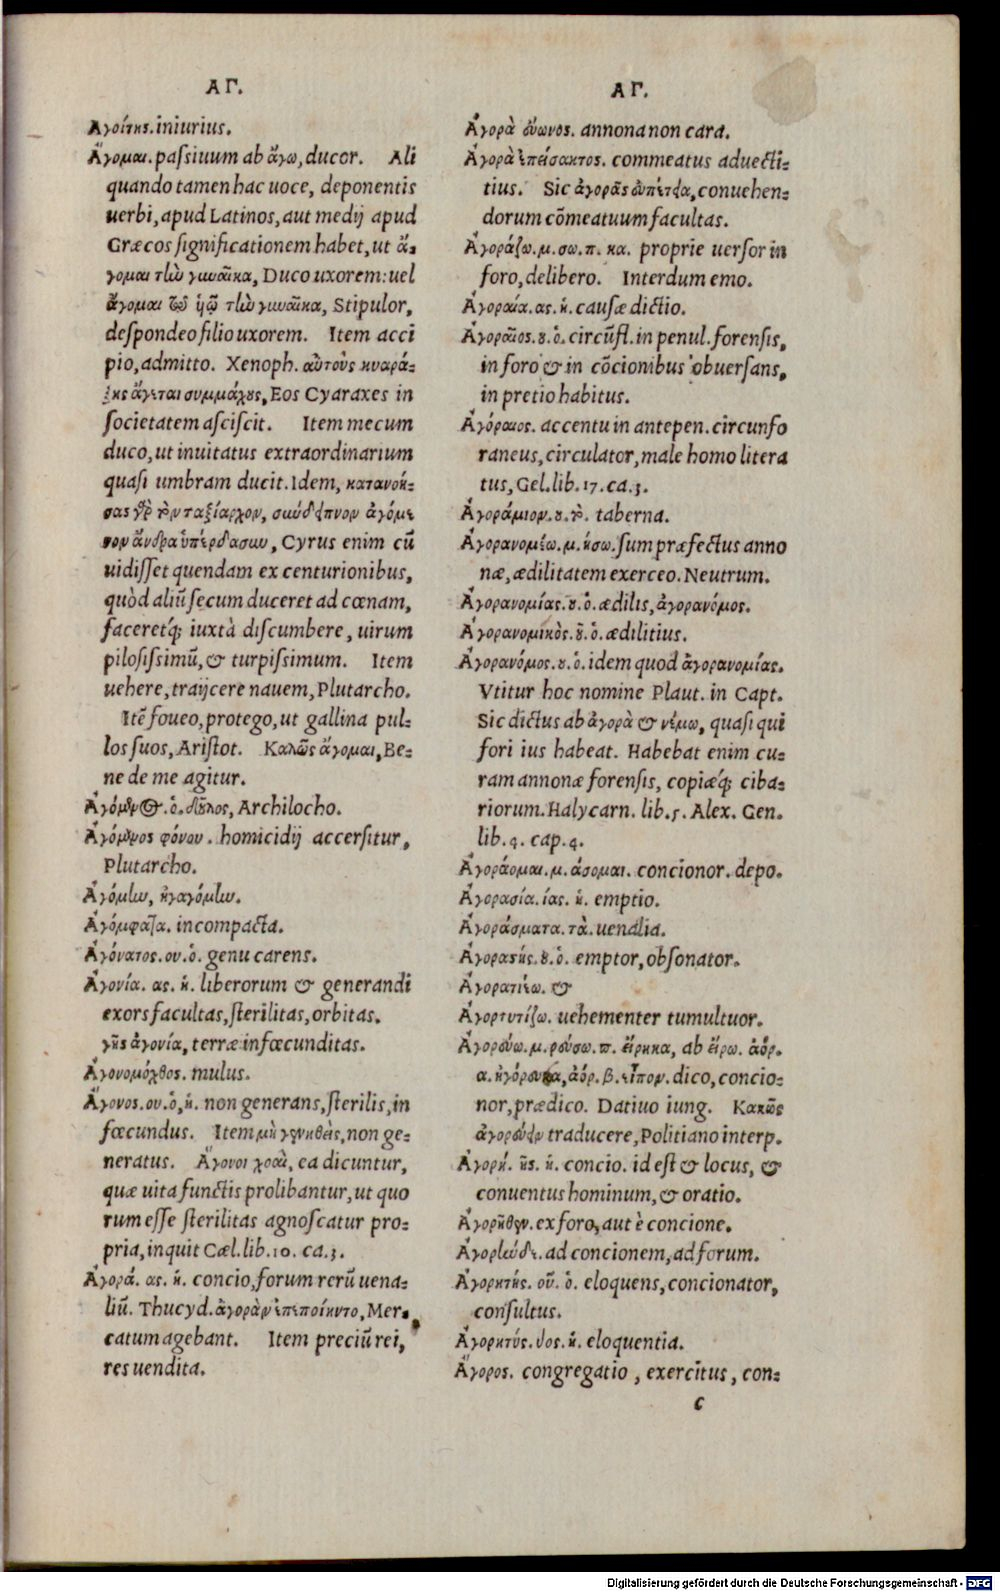 ΑΓ.
Ἀγοίτης. iniurius.
Ἄγομαι. paſsiuum ab ἄγω, ducor. Ali
quando tamen hac uoce, deponentis
uerbi, apud Latinos, aut medij apud
Græcos ſignificationem habet, ut ἄ-
γομαι τὴν γυναῖκα, Duco uxorem: uel
ἄγομαι τῷ ὑῷ τὴν γυναῖκα, Stipulor,
deſpondeo filio uxorem. Item acci
pio, admitto. Xenoph. αὐτοὺς κυαρά-
ξης ἄγεται συμμάχους, Eos Cyaraxes in
ſocietatem aſciſcit. Item mecum
duco, ut inuitatus extraordinarium
quaſi umbram ducit. Idem, κατανοή-
σας γὰρ τὸν ταξίαρχον, σύνδειπνον ἀγόμε
νον ἄνδρα ὑπέρδασυν, Cyrus enim cũ
uidiſſet quendam ex centurionibus,
quòd aliũ ſecum duceret ad cœnam,
faceretq́; iuxtà diſcumbere, uirum
piloſiſsimũ, & turpiſsimum. Item
uehere, traijcere nauem, Plutarcho.
Itẽ foueo, protego, ut gallina pul-
los ſuos, Ariſtot. Καλῶς ἄγομαι, Be-
ne de me agitur.
Ἀγόμενος. ὁ. δοῦλος, Archilocho.
Ἀγόμενος φόνου. homicidij accerſitur,
Plutarcho.
Ἀγόμην, ἠγαγόμην.
Ἀγόμφατα. incompacta.
Ἀγόνατος. ου. ὁ. genu carens.
Ἀγονία. ας. ἡ. liberorum & generandi
exors facultas, ſterilitas, orbitas.
γῆς ἀγονία, terræ infœcunditas.
Ἀγονομόχθος. mulus.
Ἄγονος. ου. ὁ, ἡ. non generans, ſterilis, in
fœcundus. Item μὴ γεννηθεὶς, non ge-
neratus. Ἄγονοι χοαὶ, ea dicuntur,
quæ uita functis prolibantur, ut quo
rum eſſe ſterilitas agnoſcatur pro-
pria, inquit Cæl. lib. 10. ca. 3.
Ἀγορά. ας. ἡ. concio, forum rerũ uena-
liũ. Thucyd. ἀγορὰν ἐπεποίηντο, Mer-
catum agebant. Item preciũ rei,
res uendita.
ΑΓ.
Ἀγορὰ εὔωνος. annona non cara.
Ἀγορὰ ἐπείσακτος. commeatus aduecti-
tius. Sic ἀγορᾶς εὐπέτεια, conuehen-
dorum cõmeatuum facultas.
Ἀγοράζω. μ. σω. π. κα. proprie uerſor in
foro, delibero. Interdum emo.
Ἀγοραία. ας. ἡ. cauſæ dictio.
Ἀγοραῖος. ου. ὁ. circũfl. in penul. forenſis,
in foro & in cõcionibus obuerſans,
in pretio habitus.
Ἀγόραιος. accentu in antepen. circunfo
raneus, circulator, male homo litera
tus, Gel. lib. 17. ca. 3.
Ἀγοράμιον. ου. τὸ. taberna.
Ἀγορανομέω. μ. ήσω. ſum præfectus anno
næ, ædilitatem exerceo. Neutrum.
Ἀγορανομίας. ου. ὁ. ædilis, ἀγορανόμος.
Ἀγορανομικὸς. οῦ. ὁ. ædilitius.
Ἀγορανόμος. ου. ὁ. idem quod ἀγορανομίας.
Vtitur hoc nomine Plaut. in Capt.
Sic dictus ab ἀγορὰ & νέμω, quaſi qui
fori ius habeat. Habebat enim cu-
ram annonæ forenſis, copiæq́; ciba-
riorum. Halycarn. lib. 5. Alex. Gen.
lib. 4. cap. 4.
Ἀγοράομαι. μ. άσομαι. concionor. depo.
Ἀγορασία. ίας. ἡ. emptio.
Ἀγοράσματα. τὰ. uenalia.
Ἀγοραστής. ου. ὁ. emptor, obſonator.
Ἀγορατιέω. &
Ἀγορτυτίζω. uehementer tumultuor.
Ἀγορεύω. μ. ρεύσω. π. εἴρηκα, ab εἴρω. ἀόρ.
α. ἠγόρευσα, ἀόρ. β. εἶπον. dico, concio-
nor, prædico. Datiuo iung. Κακῶς
ἀγορεύειν traducere, Politiano interp.
Ἀγορή. ῆς. ἡ. concio. id eſt & locus, &
conuentus hominum, & oratio.
Ἀγορῆθεν. ex foro, aut è concione.
Ἀγορήνδε. ad concionem, ad forum.
Ἀγορητής. οῦ. ὁ. eloquens, concionator,
conſultus.
Ἀγορητύς. ύος. ἡ. eloquentia.
Ἄγορος. congregatio, exercitus, con-
c
Digitalisierung gefördert durch die Deutsche Forschungsgemeinschaft - DFG